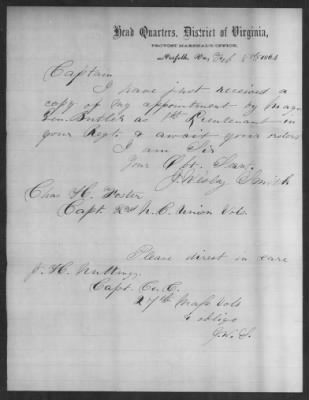 Head Quarters, District of Virginia,
PROVOST MARSHAL'S OFFICE,
Norfolk, Va., Feb 8th 1864
Captain
I have just received a
copy of my appointment by Maj
Gen. Butler as 1st Lieutenant in
your Regt. & await your orders
I am Sir
Your Obt. Servt.
J. Wesley Smith
Chas H. Foster
Capt. 2nd N.C. Union Vols.
Please direct in care
H. Nutting
Capt. Co. C.
27th Mass Vols
& oblige
J.W.S.